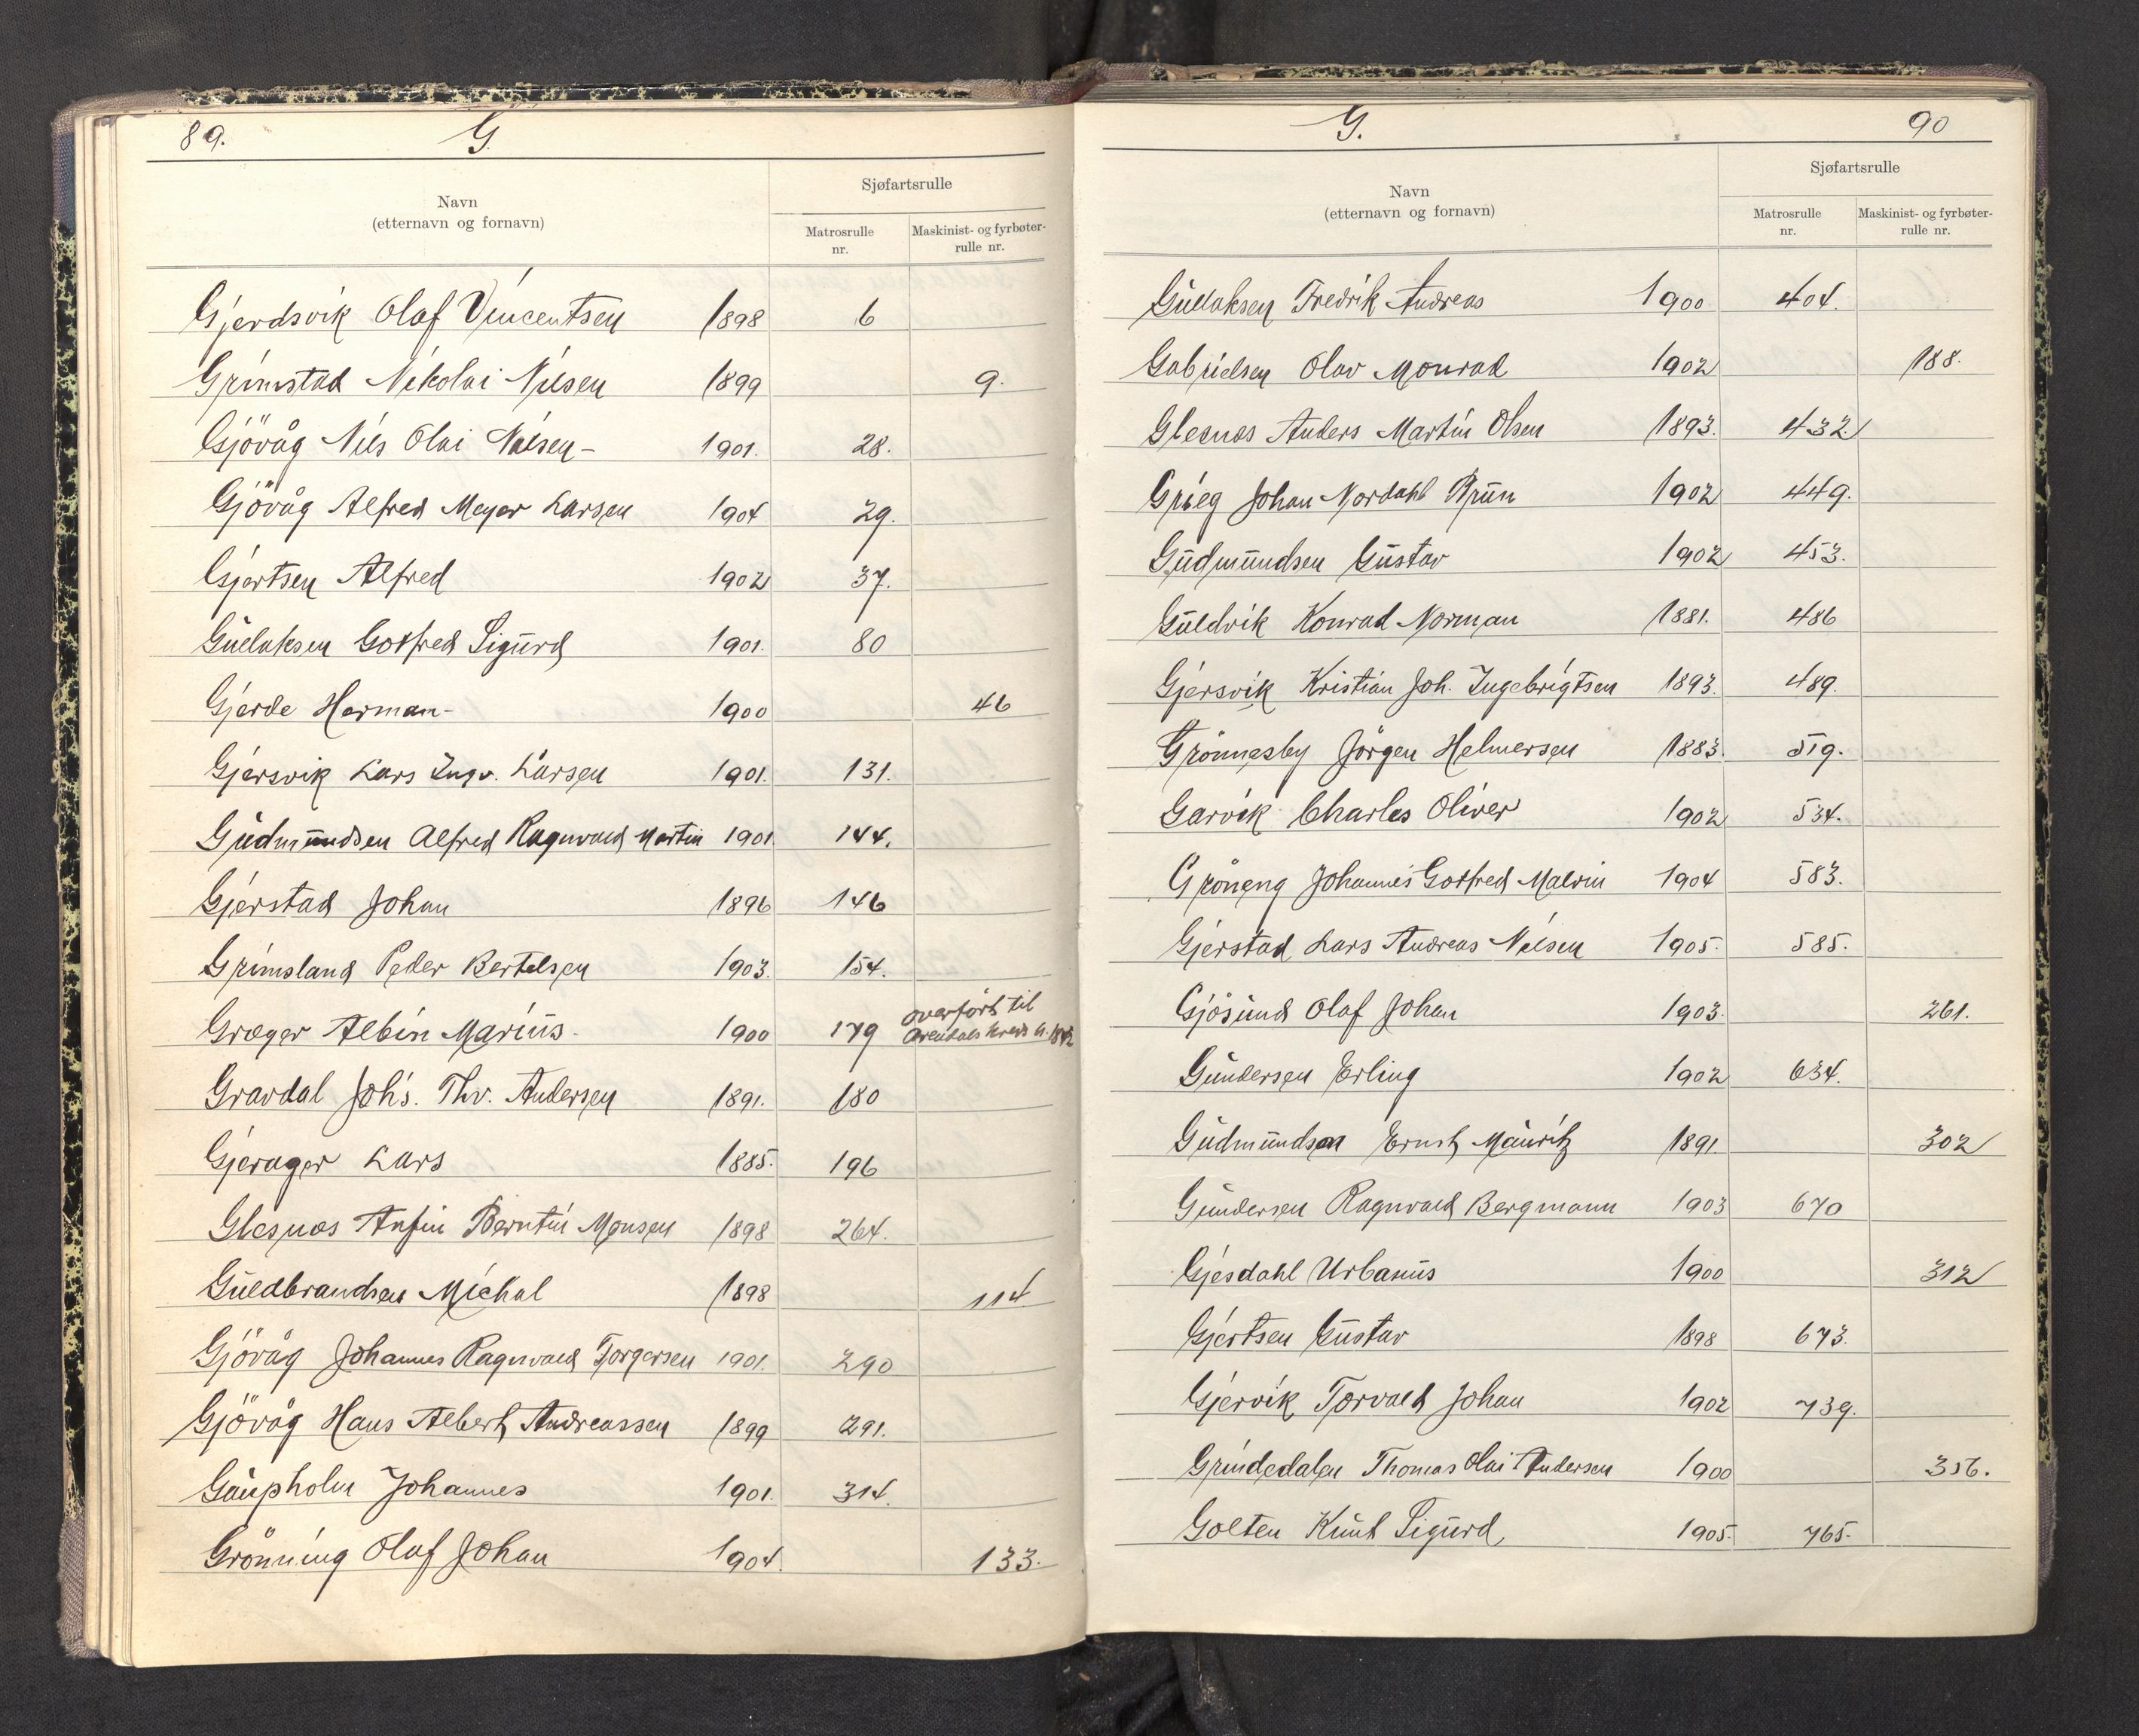 89. G.
Navn
(etternavn og fornavn)
Sjøfartsrulle
Matrosrulle nr.
Maskinist- og fyrbøter-rulle nr.
Gjerdsvik Olaf Vincentsen 1898 6
Grimstad Nikolai Nilsen 1899 9.
Gjövåg Nils Olai Nilsen - 1901. 28.
Gjövåg Alfred Meyer Larsen 1904 29.
Gjertsen Alfred 1902 37.
Gullaksen Gotfred Sigurd 1901. 80
Gjerde Herman - 1900 46
Gjersvik Lars Ingv. Larsen 1901. 131.
Gudmundsen Alfred Ragnvald Martin 1901. 144.
Gjerstad Johan 1896 146
Grimsland Peder Bertelsen 1903. 154.
Græger Albin Marius. 1900 179 overført til Arendals kreds
Gravdal Joh's. Thv. Andersen 1891. 180
Gjerager Lars 1885. 196
Glesnæs Anfin Berntin Monsen 1898 264.
Guldbrandsen Michal 1898 114.
Gjövåg Johannes Ragnvald Torgersen 1901. 290
Gjövåg Hans Albert Andreassen 1899 291.
Gaupholm Johannes 1901. 314.
Grönning Olaf Johan 1904. 133.
G. 90
Navn
(etternavn og fornavn)
Sjøfartsrulle
Matrosrulle nr.
Maskinist- og fyrbøter-rulle nr.
Gullaksen Fredrik Andreas 1900 404.
Gabrielsen Olav Monrad 1902 188.
Glesnæs Anders Martin Olsen 1893. 432
Grieg Johan Nordahl Brun 1902 449.
Gudmundsen Gustav 1902 453.
Guldvik Konrad Norman 1881. 486
Gjersvik Kristian Joh. Ingebrigtsen 1893. 489.
Grönnesby Jörgen Helmersen 1883. 519.
Garvik Charles Oliver 1902 534.
Gröneng Johannes Gotfred Malvin 1904 583.
Gjerstad Lars Andreas Nilsen 1905. 585.
Gjösund Olaf Johan 1903. 261.
Gundersen Erling 1902 634.
Gudmundsen Ernst Mauritz 1891. 302
Gundersen Ragnvald Bergmann 1903 670
Gjesdahl Urbanus 1900 312
Gjertsen Gustav 1898 673.
Gjervik Torvald Johan 1902 739.
Grindedalen Thomas Olai Andersen 1900 356.
Golten Knut Sigurd 1905. 765.